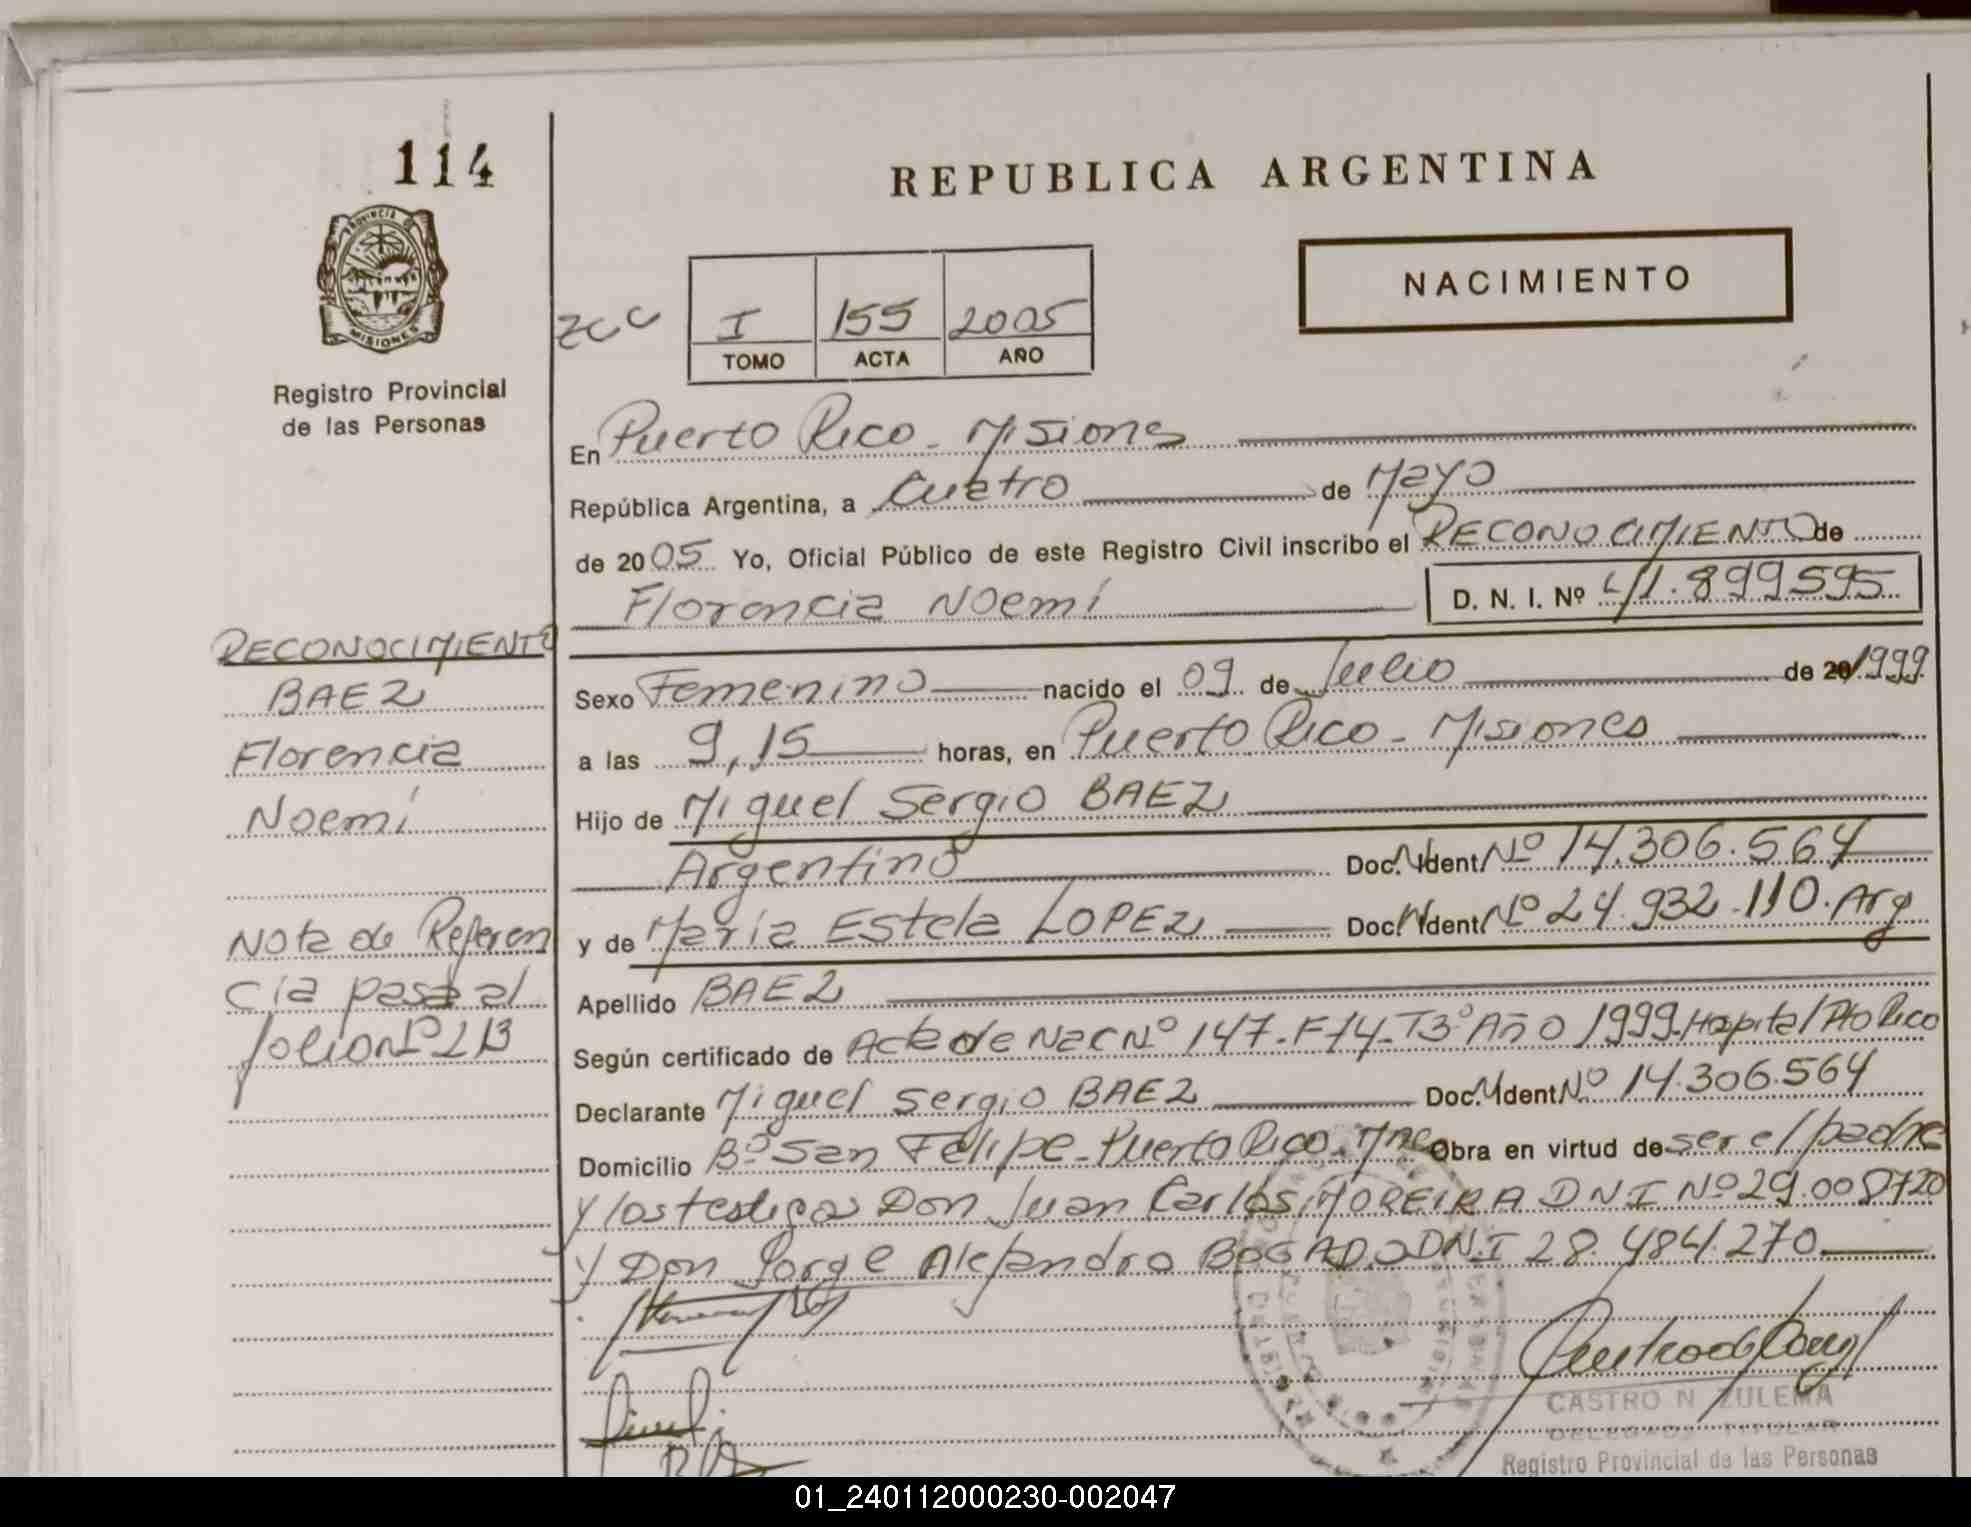 114
REPUBLICA ARGENTINA
PROVINCIA DE
MISIONES
NACIMIENTO
I 155 2005
TOMO ACTA AÑO
Registro Provincial
de las Personas
En Puerto Rico - Misiones
República Argentina, a Cuatro de Mayo
de 2005 Yo, Oficial Público de este Registro Civil inscribo el RECONOCIMIENTO de
Florencia Noemí D. N. I. Nº 41.899595
Sexo Femenino nacido el 09 de Julio de 20 1999
a las 9,15 horas, en Puerto Rico - Misiones
Hijo de Miguel Sergio BAEZ
Argentino Doc. Ident. Nº 14.306.564
y de María Estela LOPEZ Doc. Ident. Nº 24.932.110. Arg
Apellido BAEZ
Según certificado de Acta de Nac Nº 147-F14-T3º Año 1999-Hospital Pto Rico
Declarante Miguel Sergio BAEZ Doc. Ident. Nº 14.306.564
Domicilio Bº San Felipe - Puerto Rico. Mnes Obra en virtud de ser el padre
y los testigos Don Juan Carlos MOREIRA DNI Nº 29.008720
y Don Jorge Alejandro BOGADO DN.I 28.484.270
RECONOCIMIENTO
BAEZ
Florencia
Noemí
Nota de Referen
cia pasa al
folio Nº 213
CASTRO N ZULEMA
DELEGADA TITULAR
Registro Provincial de las Personas
01_240112000230-002047